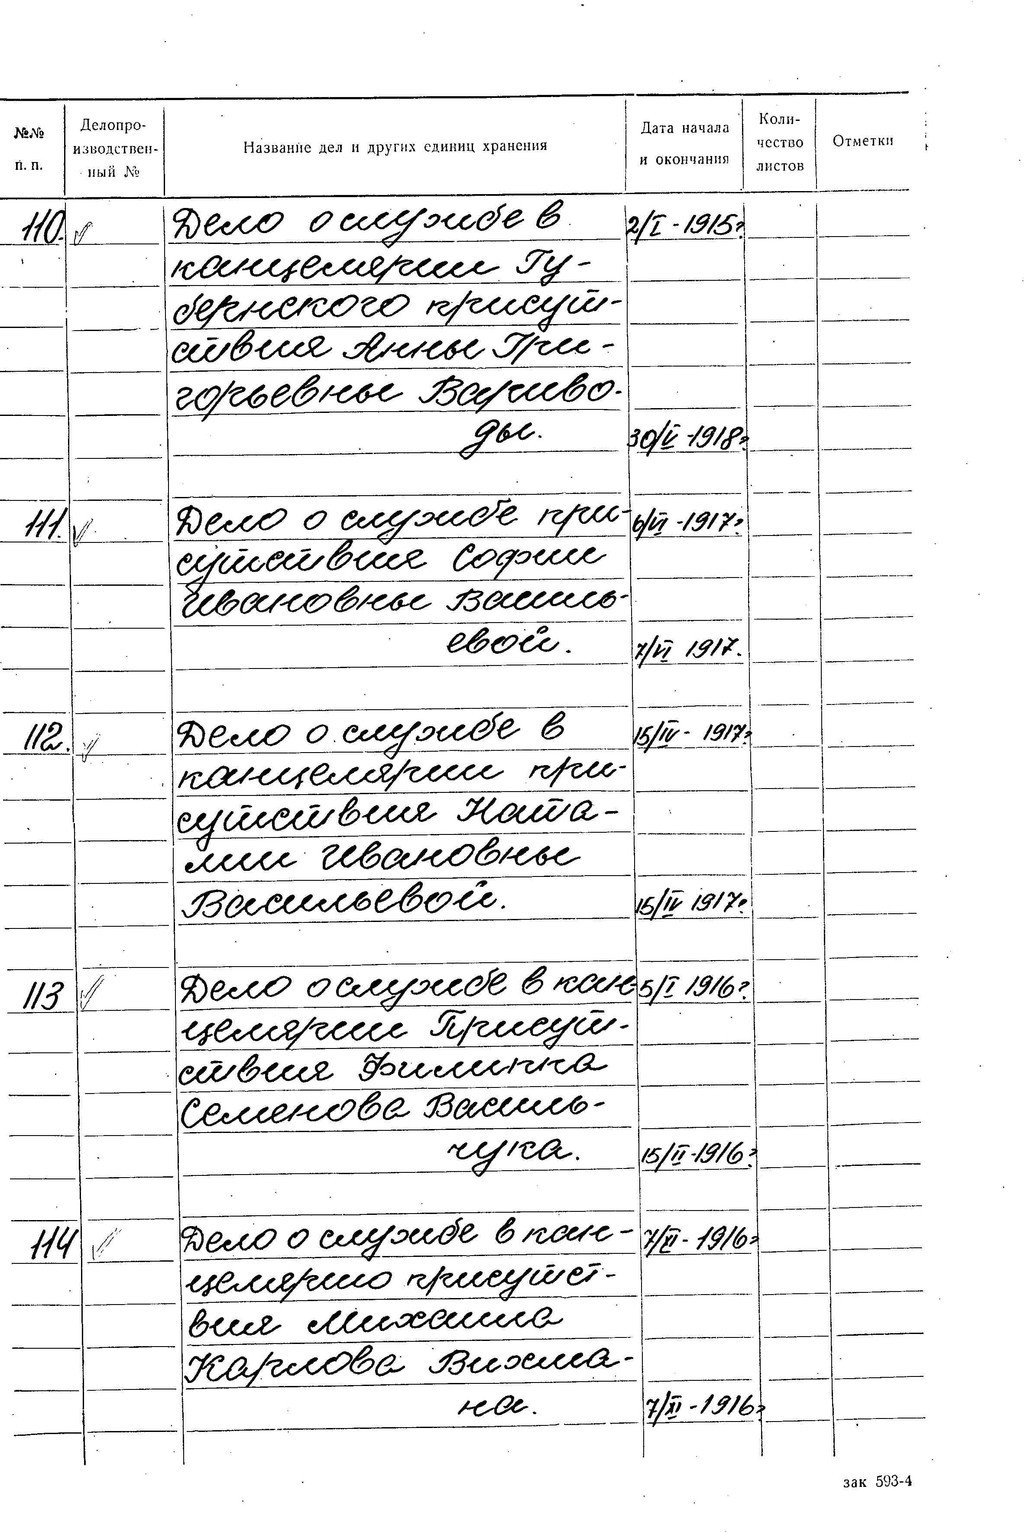 №№ п. п. Делопроизводственный № Название дел и других единиц хранения Дата начала и окончания Количество листов Отметки
110. Дело о службе в 2/I - 1915г
канцелярии Гу-
бернского присут-
ствия Анны Гри-
горьевны Вариво-
ды. 30/V - 1918г
111. Дело о службе при- 6/VI - 1917г
сутствия Софии
Ивановны Василь-
евой. 7/VI 1917.
112. Дело о службе в 15/IV - 1917г
канцелярии при-
сутствия Ната-
лии Ивановны
Васильевой. 15/IV 1917г
113 Дело о службе в кан- 5/I 1916г
целярии Присут-
ствия Филиппа
Семенова Василь-
чука. 15/II - 1916г
114 Дело о службе в кан- 7/XI - 1916г
целярию присутст-
вия Михаила
Карлова Вихма-
на. 7/XI - 1916г
зак 593-4